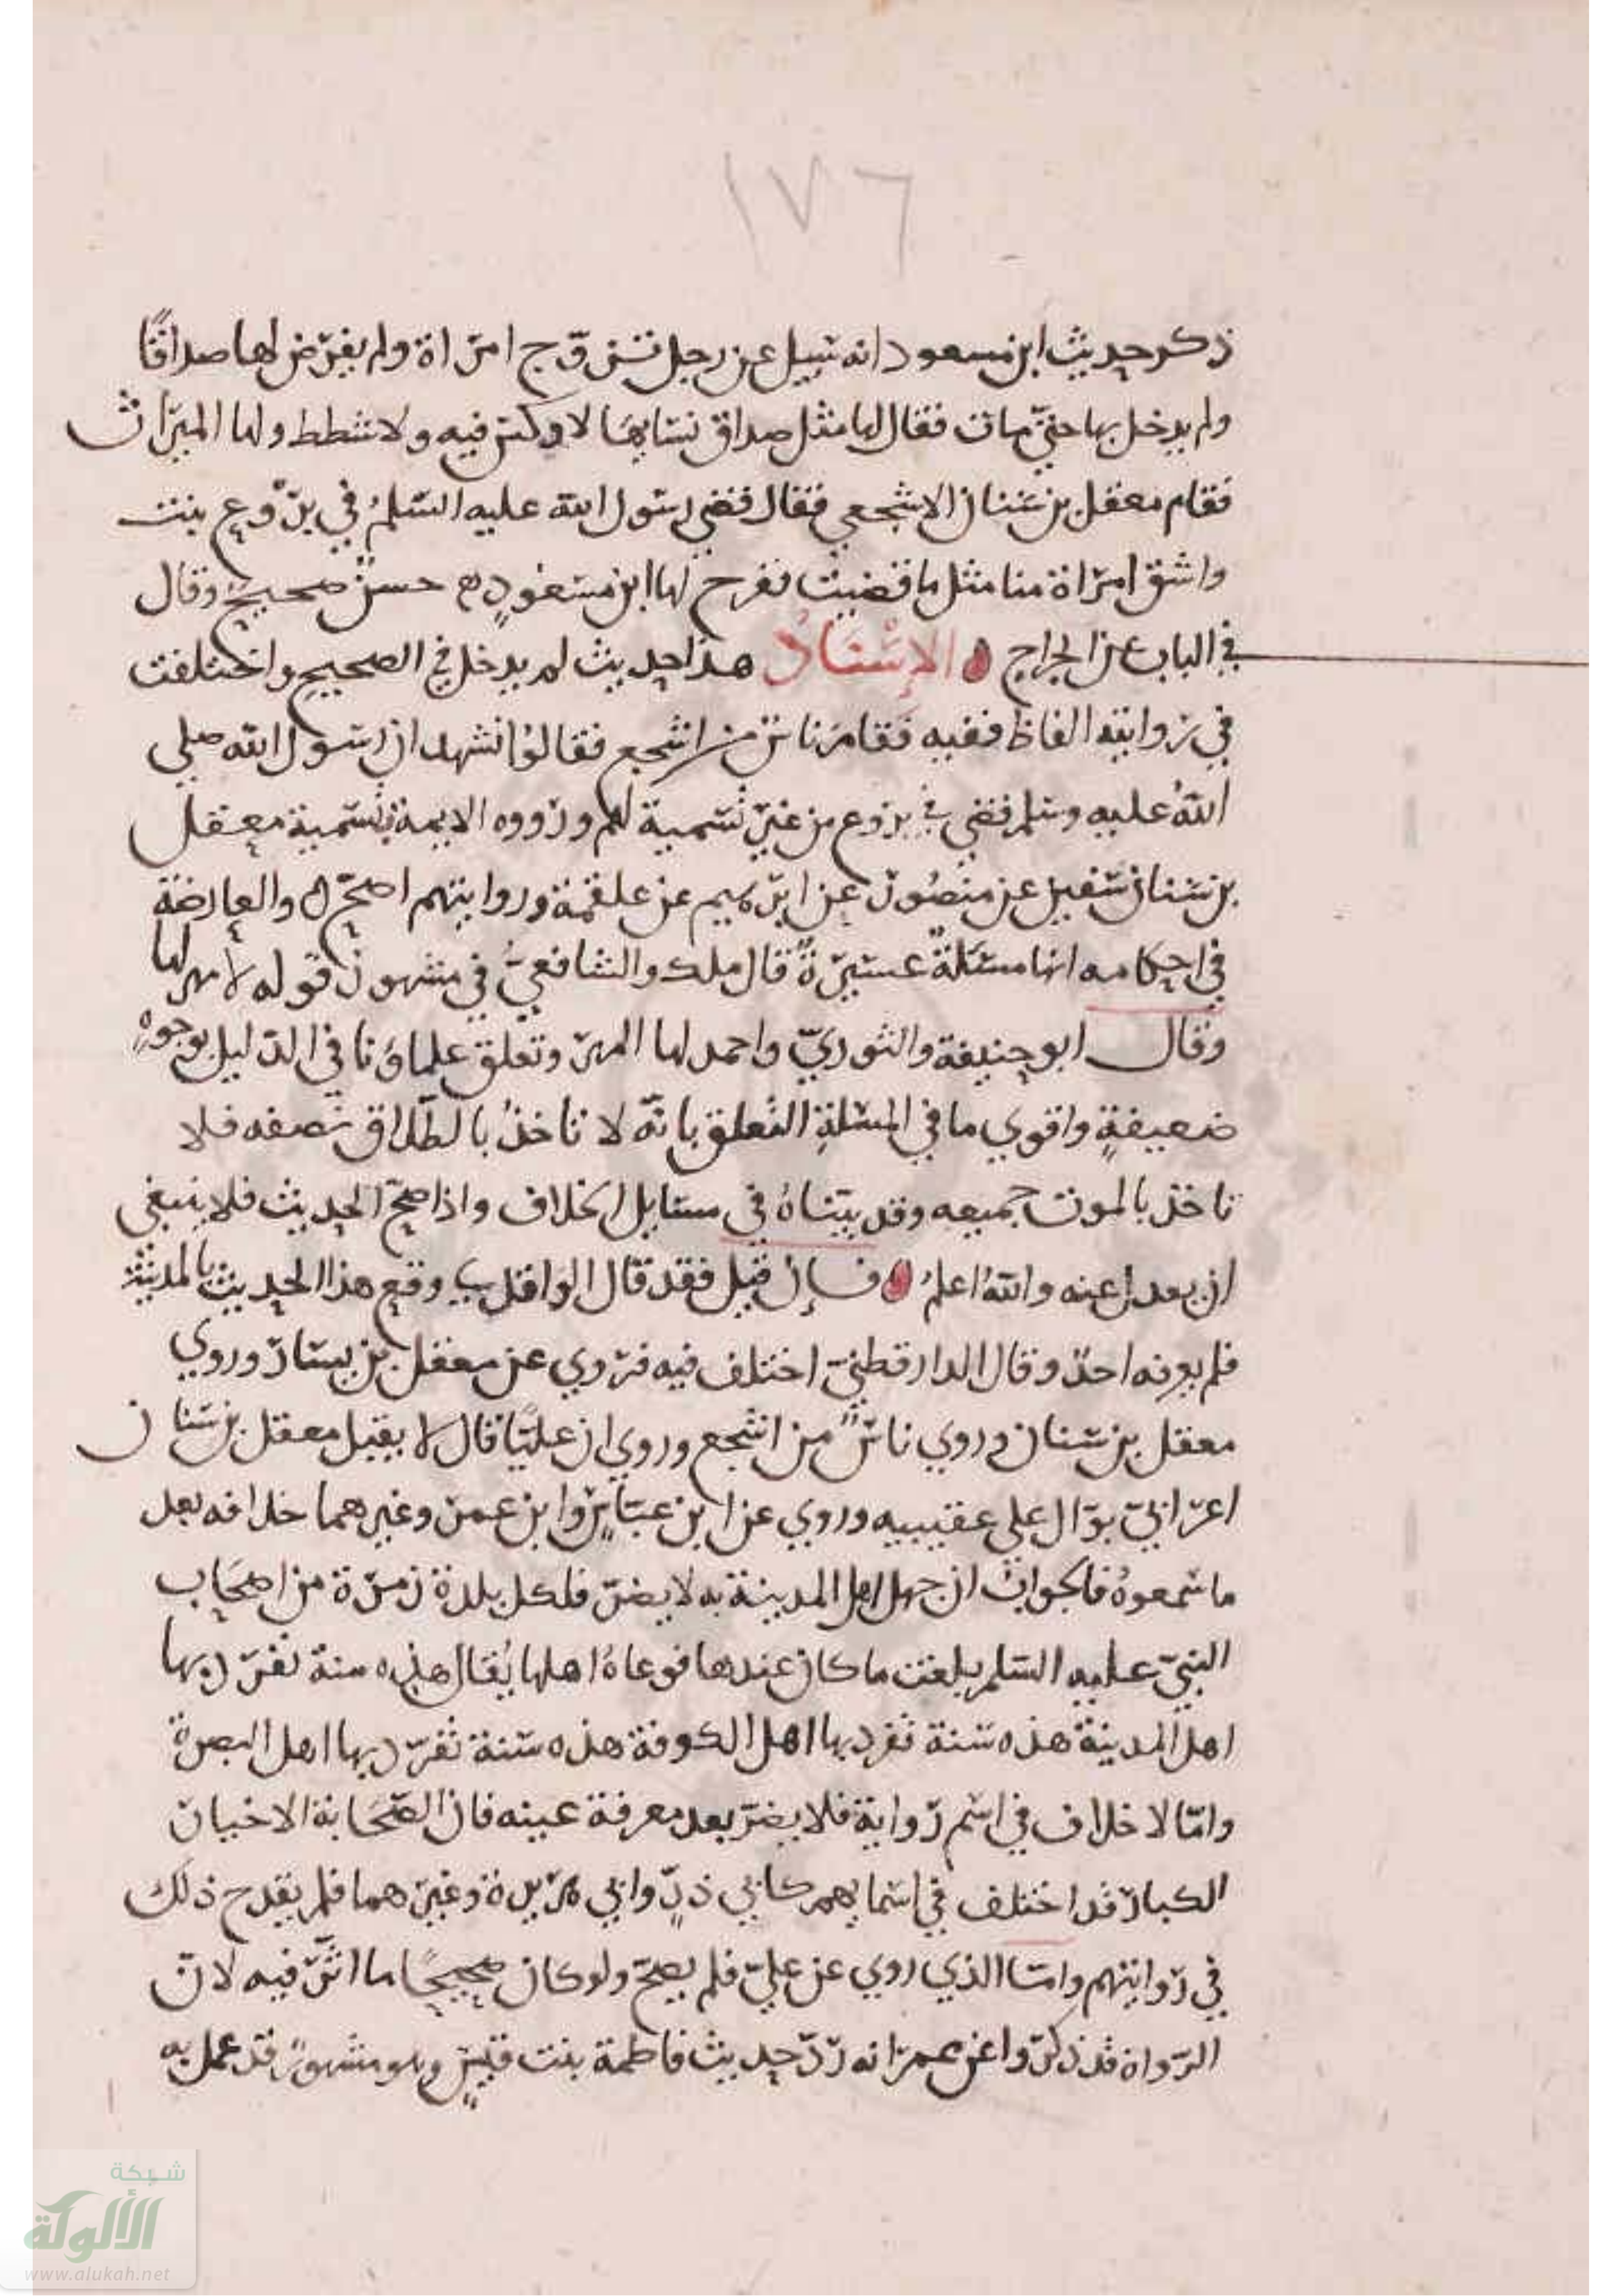 ١٧٦
ذكر حديث ابن مسعود انه سيل عن رجل تزوّج امرّاة ولم يفرّض لها صداقًا
ولم يدخل بها حتيّ مات فقال لها مثل صداق نسايها لا وكس فيه ولا شطط ولها الميرّاث
فقام معقل بن سنان الاشجعي فقال قضي رسول الله عليه السّلمُ في برْوع بنت
واشق امرّاة منا مثل ما قضيت ففرح لها ابن مسعودٍ حسنٌ صحيحٌ وقال
في الباب عن الجراح الإسْنَادُ هذا حديث لم يدخل في الصحيح واختلفت
في رّوايته الفاظ ففيه فقام ناسٌ من اشجع فقالوُا نشهد ان رسول الله صلي
اللهُ عليه وسلم قضي في بروع من غيرّ تسمية لهم ورّووه الايمة بتسمية معقل
بن سنان سفين عن منصُورّ عن ابرّهيم عن علقمة وروايتهم اصحّ والعارضة
في احكامه انها مسئلةٌ عسيرّةٌ قال ملك والشافعيُّ في مشهور قوله لا مهر لها
وقال ابو حنيفة والثوريّ واحمد لها المهرّ وتعلق علماؤنا في الدّليل بوجوهٍ
ضعيفةٍ واقوي ما في المسئلةِ التعلق بانّه لا تاخذُ بالطّلاق نصفه فلا
تاخذ بالموت جميعه وقد بيّناهُ في مسايل الخلاف واذا صحّ الحديث فلا ينبغي
ان يعدل عنه واللهُ اعلمُ فإن قيل فقد قال الواقدي وقع هذا الحديث بالمدينة
فلم يعرفه احدٌ وقال الدارقطنيّ اختلف فيه فرّوي عن معقل بن يسارّ وروي
معقل بن سنان وروي ناسٌ من اشجع وروي ان عليًّا قال لا يقبل معقل بن سنان
اعرّابيّ بوّال علي عقبيه وروي عن ابن عبّاسٍ وابن عمرّ وغيرهما خلافه بعد
ما سمعوهُ فالجوابُ ان جهل اهل المدينة به لا يضرّ فلكل بلدة زمرّة من اصحَاب
النبيّ عليه السّلم بلغت ما كان عندها فوعاهُ اهلها يُقال هذه سنة تفرّد بها
اهل المدينة هذه سَنة تفرد بها اهل الكوفة هذه سَنة تفرّد بها اهل البصرة
وامّا لا خلاف في اسَم رّواية فلا يضرّ بعد معرفة عينه فان الصّحَابة الاخيارّ
الكبارّ قد اختلف في اسمايهم كابي ذرٍّ وابي هرّيرة وغيرّهما فلم يقدح ذلك
في رّوايتهم وامّا الذي روي عن عليّ فلم يصحّ ولو كان صحيحًا ما اثّرّ فيه لانّ
الرّواة قد ذكرّوا عن عمرّ انه رّدّ حديث فاطمة بنت قيسٍ وهو مشهورٌ قد عمل به
شبكة
الألوكة
www.alukah.net